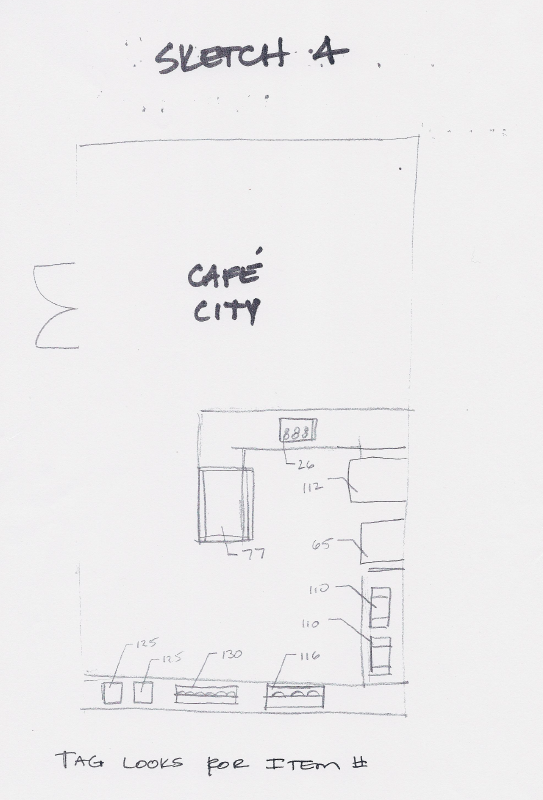 SKETCH 4
CAFÉ
CITY
26
112
77
65
110
110
125
125
130
116
TAG LOOKS FOR ITEM #